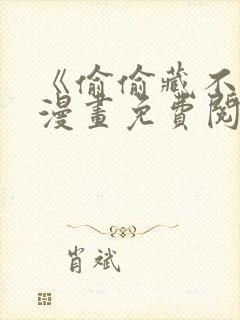 《偷偷藏不
漫畫免費閱
肖斌